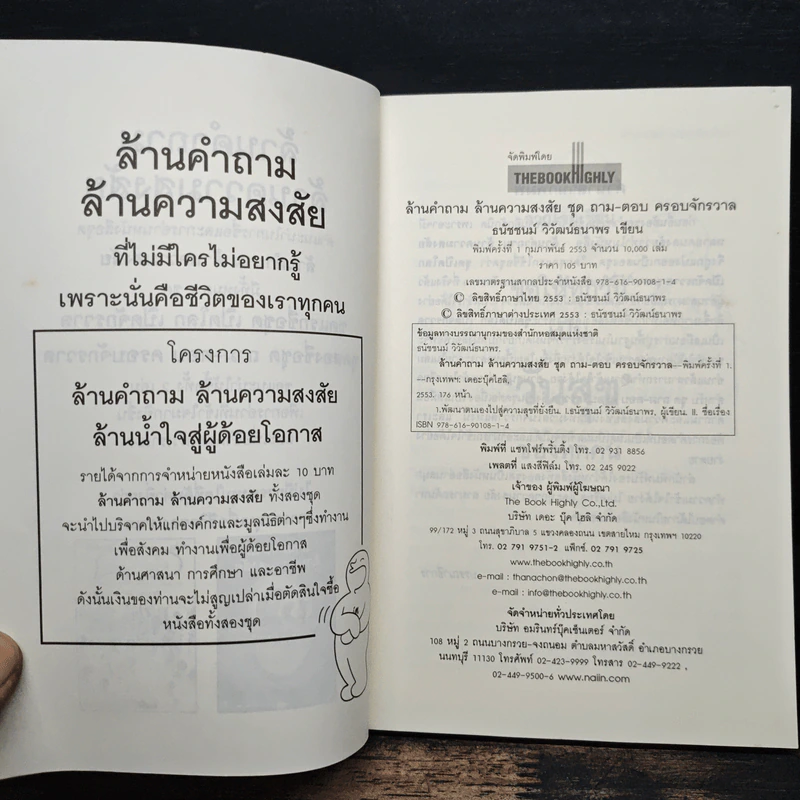 ล้านคำถาม
ล้านความสงสัย
ที่ไม่มีใครไม่อยากรู้
เพราะนั่นคือชีวิตของเราทุกคน
โครงการ
ล้านคำถาม ล้านความสงสัย
ล้านน้ำใจสู่ผู้ด้อยโอกาส
รายได้จากการจำหน่ายหนังสือเล่มละ 10 บาท
ล้านคำถาม ล้านความสงสัย ทั้งสองชุด
จะนำไปบริจาคให้แก่องค์กรและมูลนิธิต่างๆซึ่งทำงาน
เพื่อสังคม ทำงานเพื่อผู้ด้อยโอกาส
ด้านศาสนา การศึกษา และอาชีพ
ดังนั้นเงินของท่านจะไม่สูญเปล่าเมื่อตัดสินใจซื้อ
หนังสือทั้งสองชุด
จัดพิมพ์โดย
THEBOOKHIGHLY
ล้านคำถาม ล้านความสงสัย ชุด ถาม-ตอบ ครอบจักรวาล
ธนัชชนม์ วิวัฒน์ธนาพร เขียน
พิมพ์ครั้งที่ 1 กุมภาพันธ์ 2553 จำนวน 10,000 เล่ม
ราคา 105 บาท
เลขมาตรฐานสากลประจำหนังสือ 978-616-90108-1-4
© ลิขสิทธิ์ภาษาไทย 2553 : ธนัชชนม์ วิวัฒน์ธนาพร
© ลิขสิทธิ์ภาษาต่างประเทศ 2553 : ธนัชชนม์ วิวัฒน์ธนาพร
ข้อมูลทางบรรณานุกรมของสำนักหอสมุดแห่งชาติ
ธนัชชนม์ วิวัฒน์ธนาพร.
ล้านคำถาม ล้านความสงสัย ชุด ถาม-ตอบ ครอบจักรวาล--พิมพ์ครั้งที่ 1.
--กรุงเทพฯ: เดอะบุ๊คไฮลิ,
2553. 176 หน้า.
1.พัฒนาตนเองไปสู่ความสุขที่ยั่งยืน. I.ธนัชชนม์ วิวัฒน์ธนาพร, ผู้เขียน. II. ชื่อเรื่อง
ISBN 978-616-90108-1-4
พิมพ์ที่ แซทโฟร์พริ้นติ้ง โทร. 02 931 8856
เพลตที่ แสงสีฟิล์ม โทร. 02 245 9022
เจ้าของ ผู้พิมพ์ผู้โฆษณา
The Book Highly Co.,Ltd.
บริษัท เดอะ บุ๊ค ไฮลิ จำกัด
99/172 หมู่ 3 ถนนสุขาภิบาล 5 แขวงคลองถนน เขตสายไหม กรุงเทพฯ 10220
โทร. 02 791 9751-2 แฟ็กซ์. 02 791 9725
www.thebookhighly.co.th
e-mail : thanachon@thebookhighly.co.th
e-mail : info@thebookhighly.co.th
จัดจำหน่ายทั่วประเทศโดย
บริษัท อมรินทร์บุ๊คเซ็นเตอร์ จำกัด
108 หมู่ 2 ถนนบางกรวย-จงถนอม ตำบลมหาสวัสดิ์ อำเภอบางกรวย
นนทบุรี 11130 โทรศัพท์ 02-423-9999 โทรสาร 02-449-9222 ,
02-449-9500-6 www.naiin.com